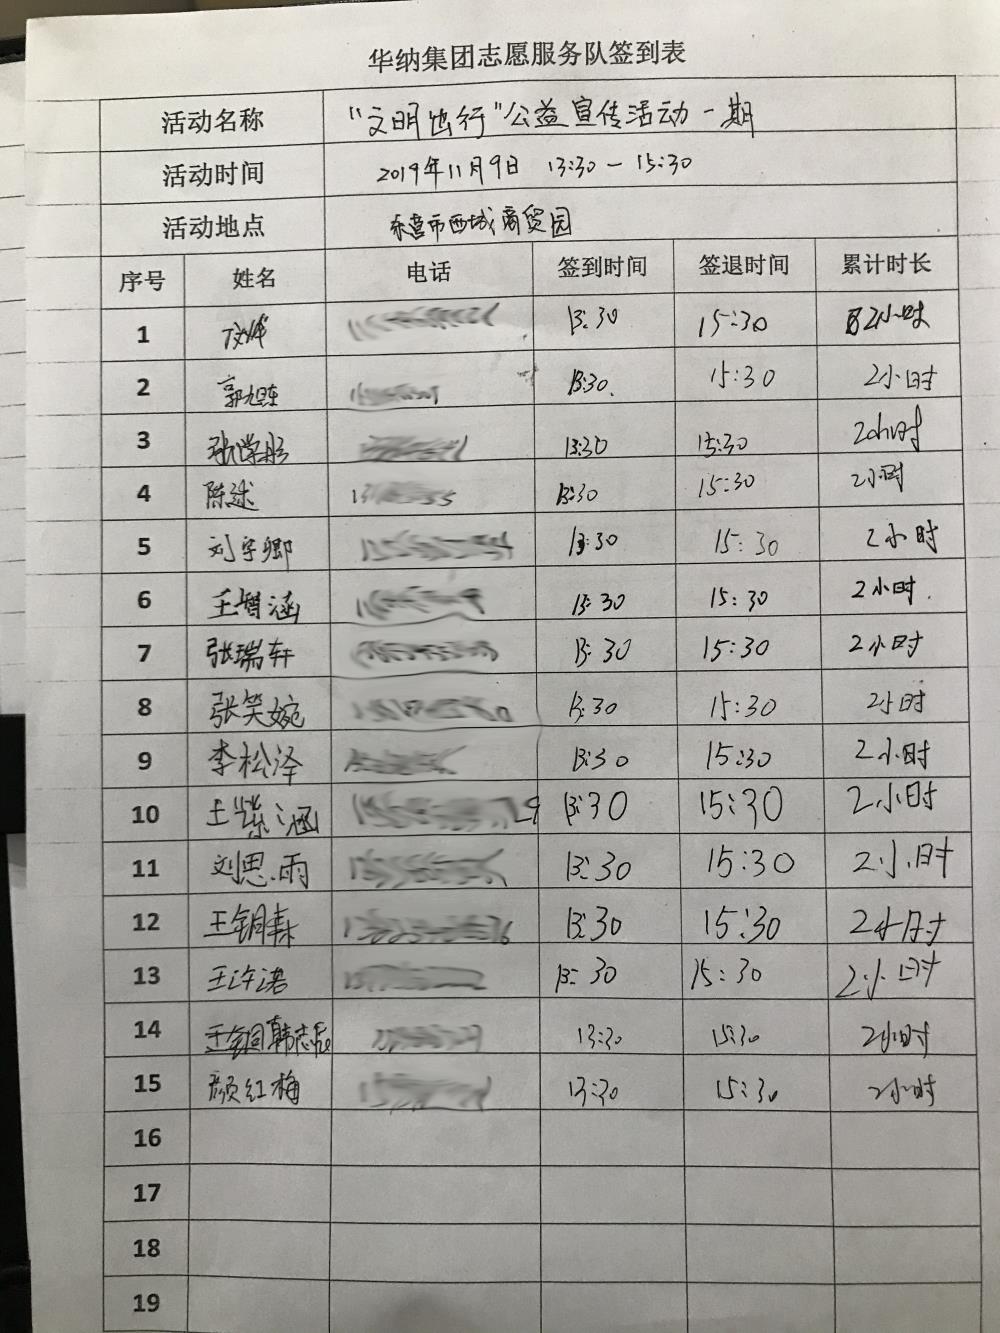 华纳集团志愿服务队签到表
活动名称 “文明出行”公益宣传活动一期
活动时间 2019年11月9日 13:30一15:30
活动地点 东营市西城商贸园
序号 姓名 电话 签到时间 签退时间 累计时长
1 13:30 15:30 2小时
2 郭旭东 13:30. 15:30 2小时
3 张学彤 13:30 15:30 2小时
4 陈述 13:30 15:30 2小时
5 刘宇卿 13:30 15:30 2小时
6 王增涵 13:30 15:30 2小时.
7 张瑞轩 13:30 15:30 2小时
8 张笑婉 13:30 15:30 2小时
9 李松泽 13:30 15:30 2小时
10 王紫涵 13:30 15:30 2小时
11 刘思雨 13:30 15:30 2小时
12 13:30 15:30 2小时
13 王许诺 13:30 15:30 2小时
14 韩志辰 13:30 15:30 2小时
15 颜红梅 13:30 15:30 2小时
16
17
18
19